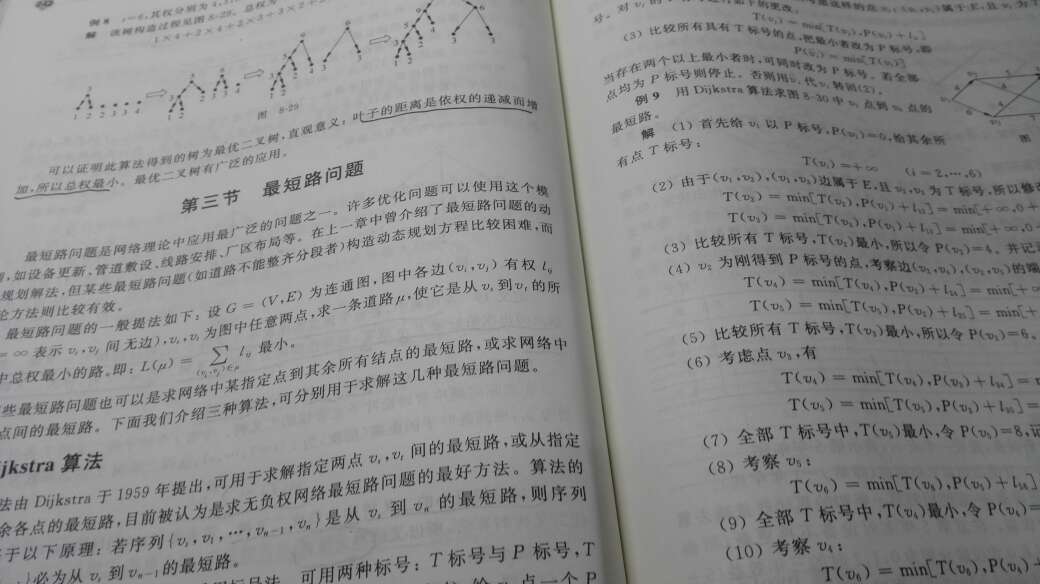 例8
解 该树构造过程见图8-29。总权为
1×4+2×4+2×3+3×2+
图 8-29
可以证明此算法得到的树为最优二叉树,直观意义:叶子的距离是依权的递减而增
加,所以总权最小。最优二叉树有广泛的应用。
第三节 最短路问题
最短路问题是网络理论中应用最广泛的问题之一。许多优化问题可以使用这个模
,如设备更新、管道敷设、线路安排、厂区布局等。在上一章中曾介绍了最短路问题的动
规划解法,但某些最短路问题(如道路不能整齐分段者)构造动态规划方程比较困难,而
论方法则比较有效。
最短路问题的一般提法如下:设 G=(V,E) 为连通图,图中各边(vᵢ,vⱼ)有权 lᵢⱼ
=∞表示 vᵢ,vⱼ 间无边),vₛ,vₜ 为图中任意两点,求一条道路 μ,使它是从 vₛ 到 vₜ 的所
中总权最小的路。即:L(μ)= ∑ lᵢⱼ 最小。
(vᵢ,vⱼ)∈μ
些最短路问题也可以是求网络中某指定点到其余所有结点的最短路,或求网络中
点间的最短路。下面我们介绍三种算法,可分别用于求解这几种最短路问题。
jkstra 算法
法由 Dijkstra 于 1959 年提出,可用于求解指定两点 vₛ,vₜ 间的最短路,或从指定
余各点的最短路,目前被认为是求无负权网络最短路问题的最好方法。算法的
于以下原理:若序列{vₛ,v₁,…,vₙ₋₁,vₙ}是从 vₛ 到 vₙ 的最短路,则序列
}必为从 vₛ 到 vₙ₋₁的最短路。
可用两种标号:T 标号与 P 标号,T
点一个 P
T(vⱼ)=min[T(vⱼ),P(vᵢ)+lᵢⱼ]
(3) 比较所有具有 T 标号的点,把最小者改为 P 标号,即
P(v̄ᵢ)=min[T(vᵢ)]
当存在两个以上最小者时,可同时改为 P 标号。若全部
点均为 P 标号则停止。否则用v̄ᵢ代vᵢ转回(2)。
例9 用 Dijkstra 算法求图 8-30 中 v₁ 点到 v₆ 点的
最短路。
图
解 (1) 首先给 v₁ 以 P 标号,P(v₁)=0,给其余所
有点 T 标号:
T(vᵢ)=+∞ (i=2,…,6)
(2) 由于(v₁,v₂),(v₁,v₃)边属于 E,且 v₂,v₃ 为 T 标号,所以修
T(v₂)=min[T(v₂),P(v₁)+l₁₂]=min[+∞,0+
T(v₃)=min[T(v₃),P(v₁)+l₁₃]=min[+∞,0
(3) 比较所有 T 标号,T(v₂)最小,所以令 P(v₂)=4。并记
(4) v₂ 为刚得到 P 标号的点,考察边(v₂,v₄),(v₂,v₅)的端
T(v₄)=min[T(v₄),P(v₂)+l₂₄]=min[+
T(v₅)=min[T(v₅),P(v₂)+l₂₅]=min[+
(5) 比较所有 T 标号,T(v₃)最小,所以令 P(v₃)=6。
(6) 考虑点 v₃,有
T(v₄)=min[T(v₄),P(v₃)+l₃₄]=
T(v₅)=min[T(v₅),P(v₃)+l₃₅]=
(7) 全部 T 标号中,T(v₅)最小,令 P(v₅)=8,记
(8) 考察 v₅:
T(v₆)=min[T(v₆),P(v₅)+l₅₆]
(9) 全部 T 标号中,T(v₄)最小,令 P(v₄)=
(10) 考察 v₄:
T(v₆)=min[T(v₆),P